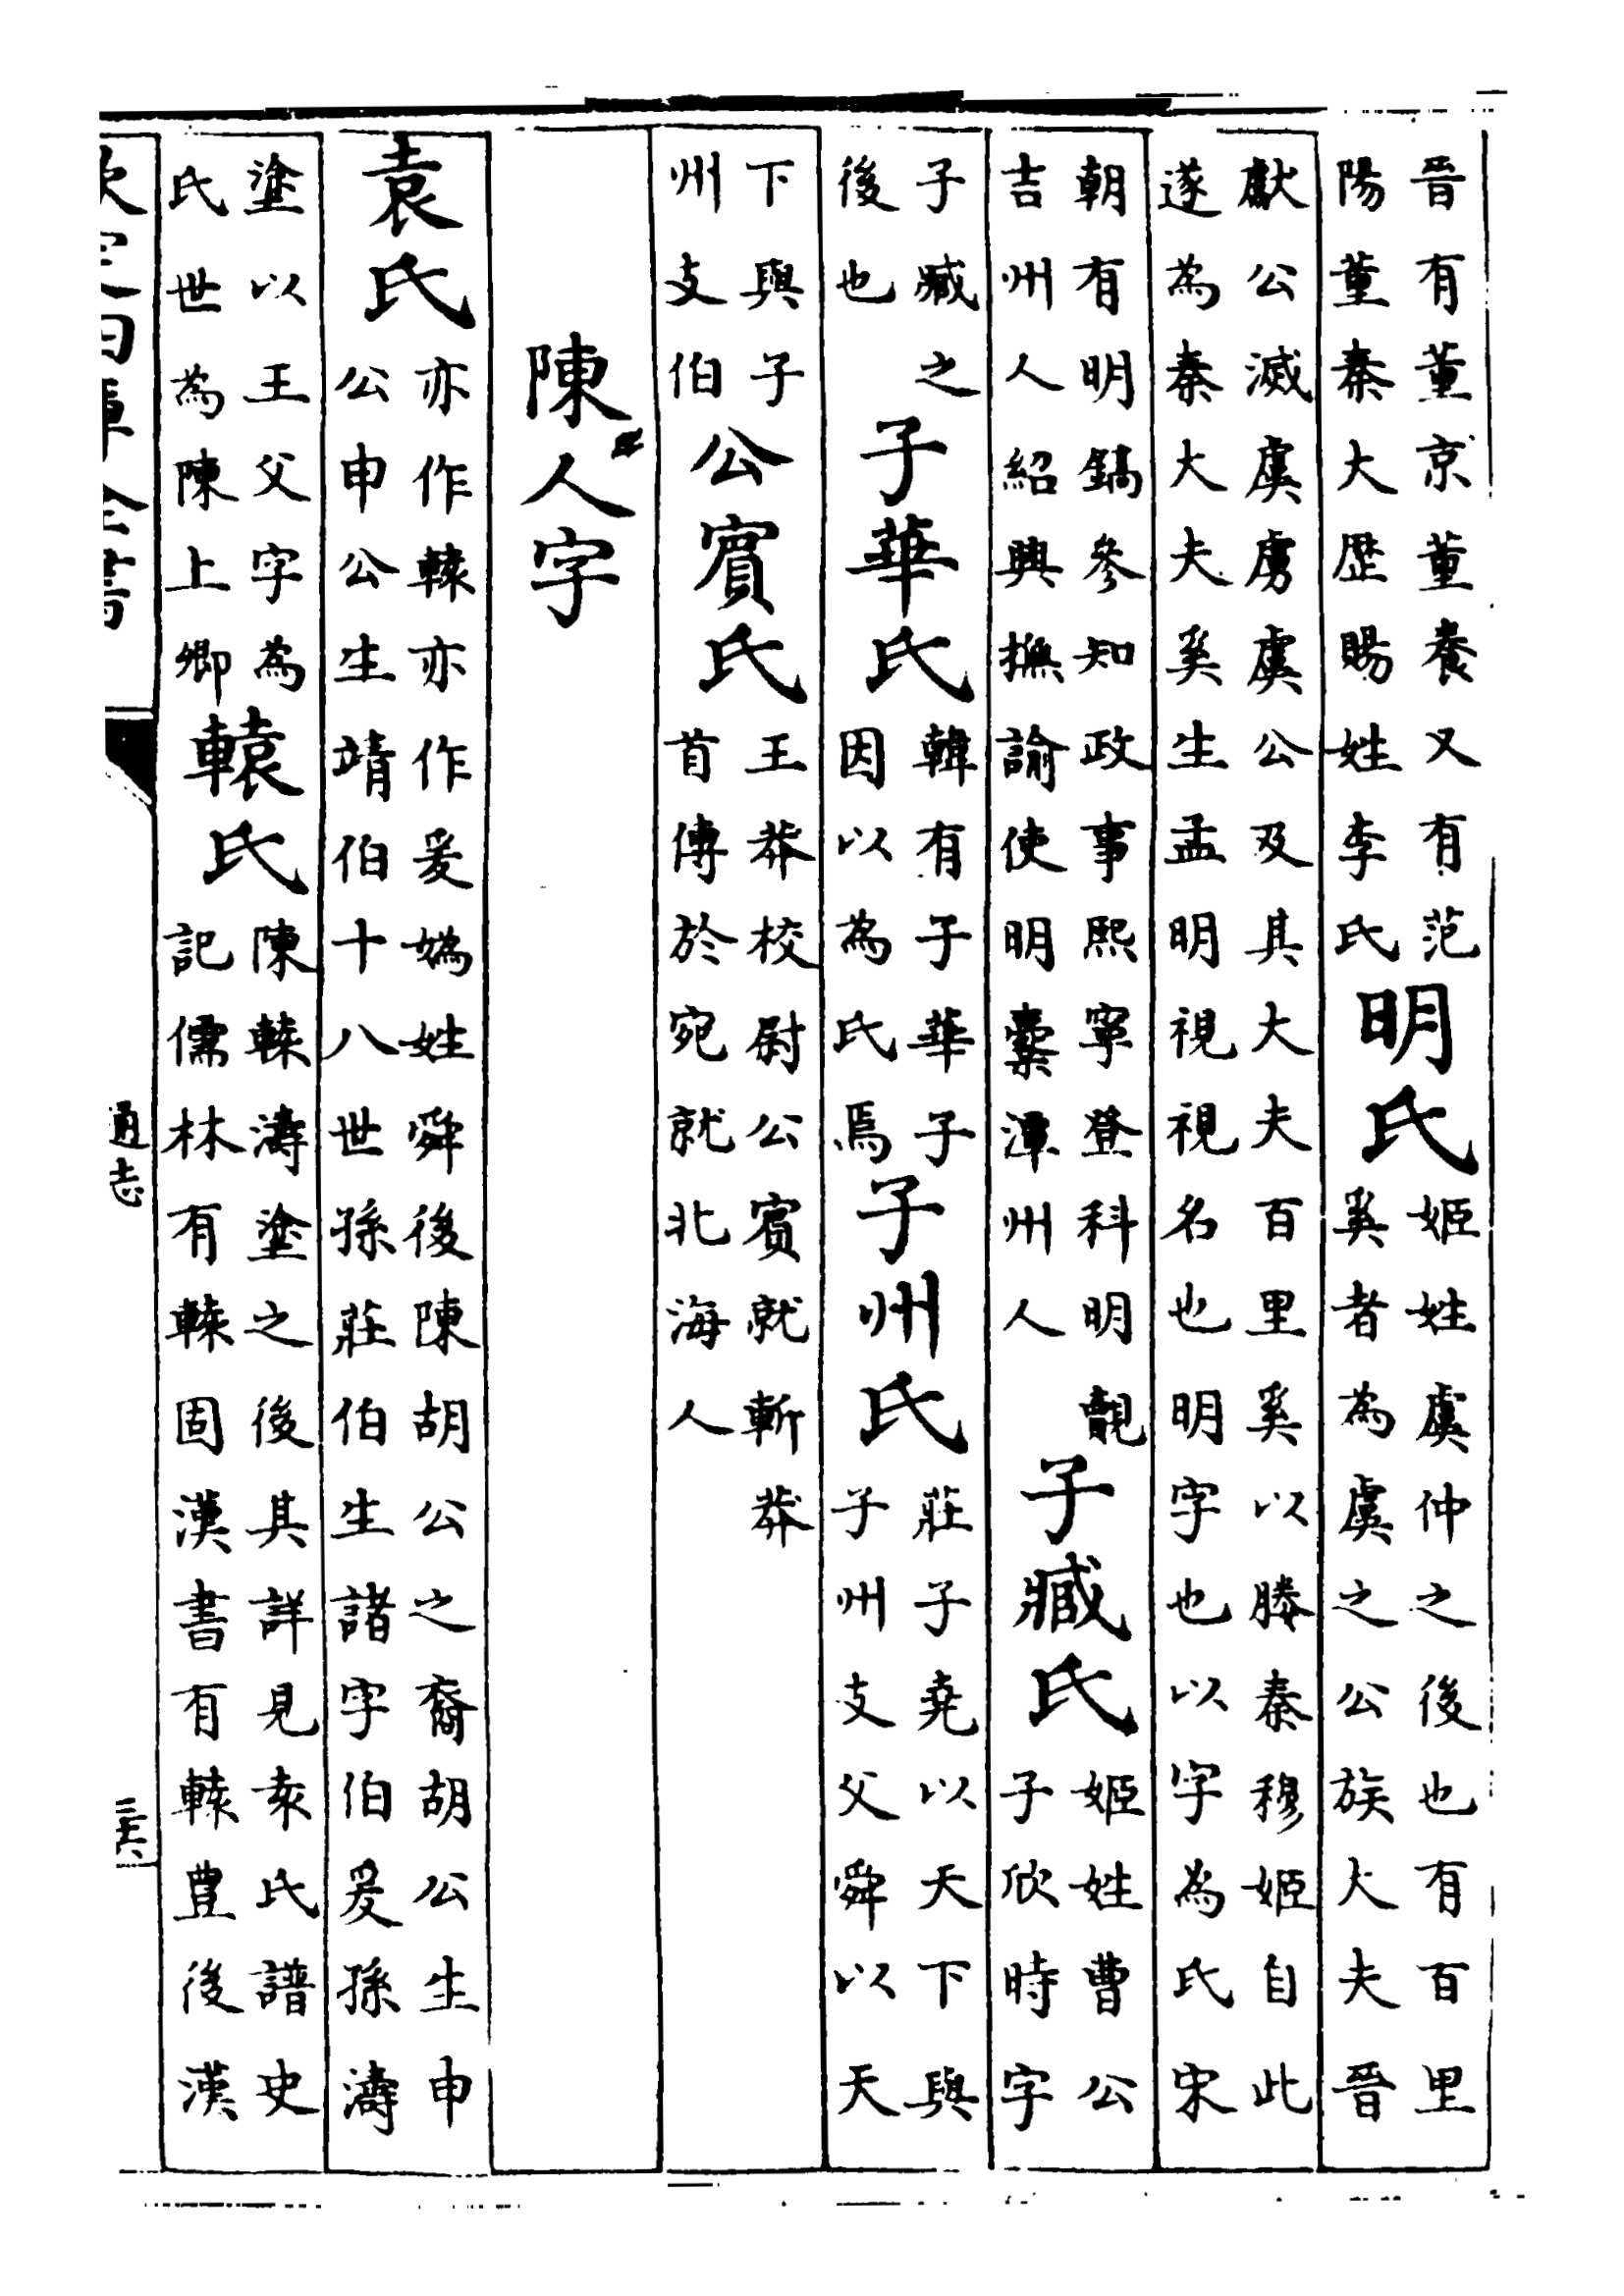 晉有董京董養又有范
陽董秦大歴賜姓李氏
明氏
姬姓虞仲之後也有百里
奚者為虞之公族大夫晉
獻公滅虞虜虞公及其大夫百里奚以媵秦穆姬自此
遂為秦大夫奚生孟明視視名也明字也以字為氏宋
朝有明鎬參知政事熙寧登科明覿
吉州人紹興撫諭使明槖潭州人
子臧氏
姬姓曹公
子欣時字
子臧之
後也
子華氏
韓有子華子
因以為氏焉
子州氏
莊子堯以天下與
子州支父舜以天
下與子
州支伯
公賓氏
王莽校尉公賓就斬莽
首傳於宛就北海人
陳人字
袁氏
亦作轅亦作爰媯姓舜後陳胡公之裔胡公生申
公申公生靖伯十八世孫莊伯生諸字伯爰孫濤
塗以王父字為
氏世為陳上卿
轅氏
陳轅濤塗之後其詳見袁氏譜史
記儒林有轅固漢書有轅豊後漢
欽定四庫全書
通志
三十六